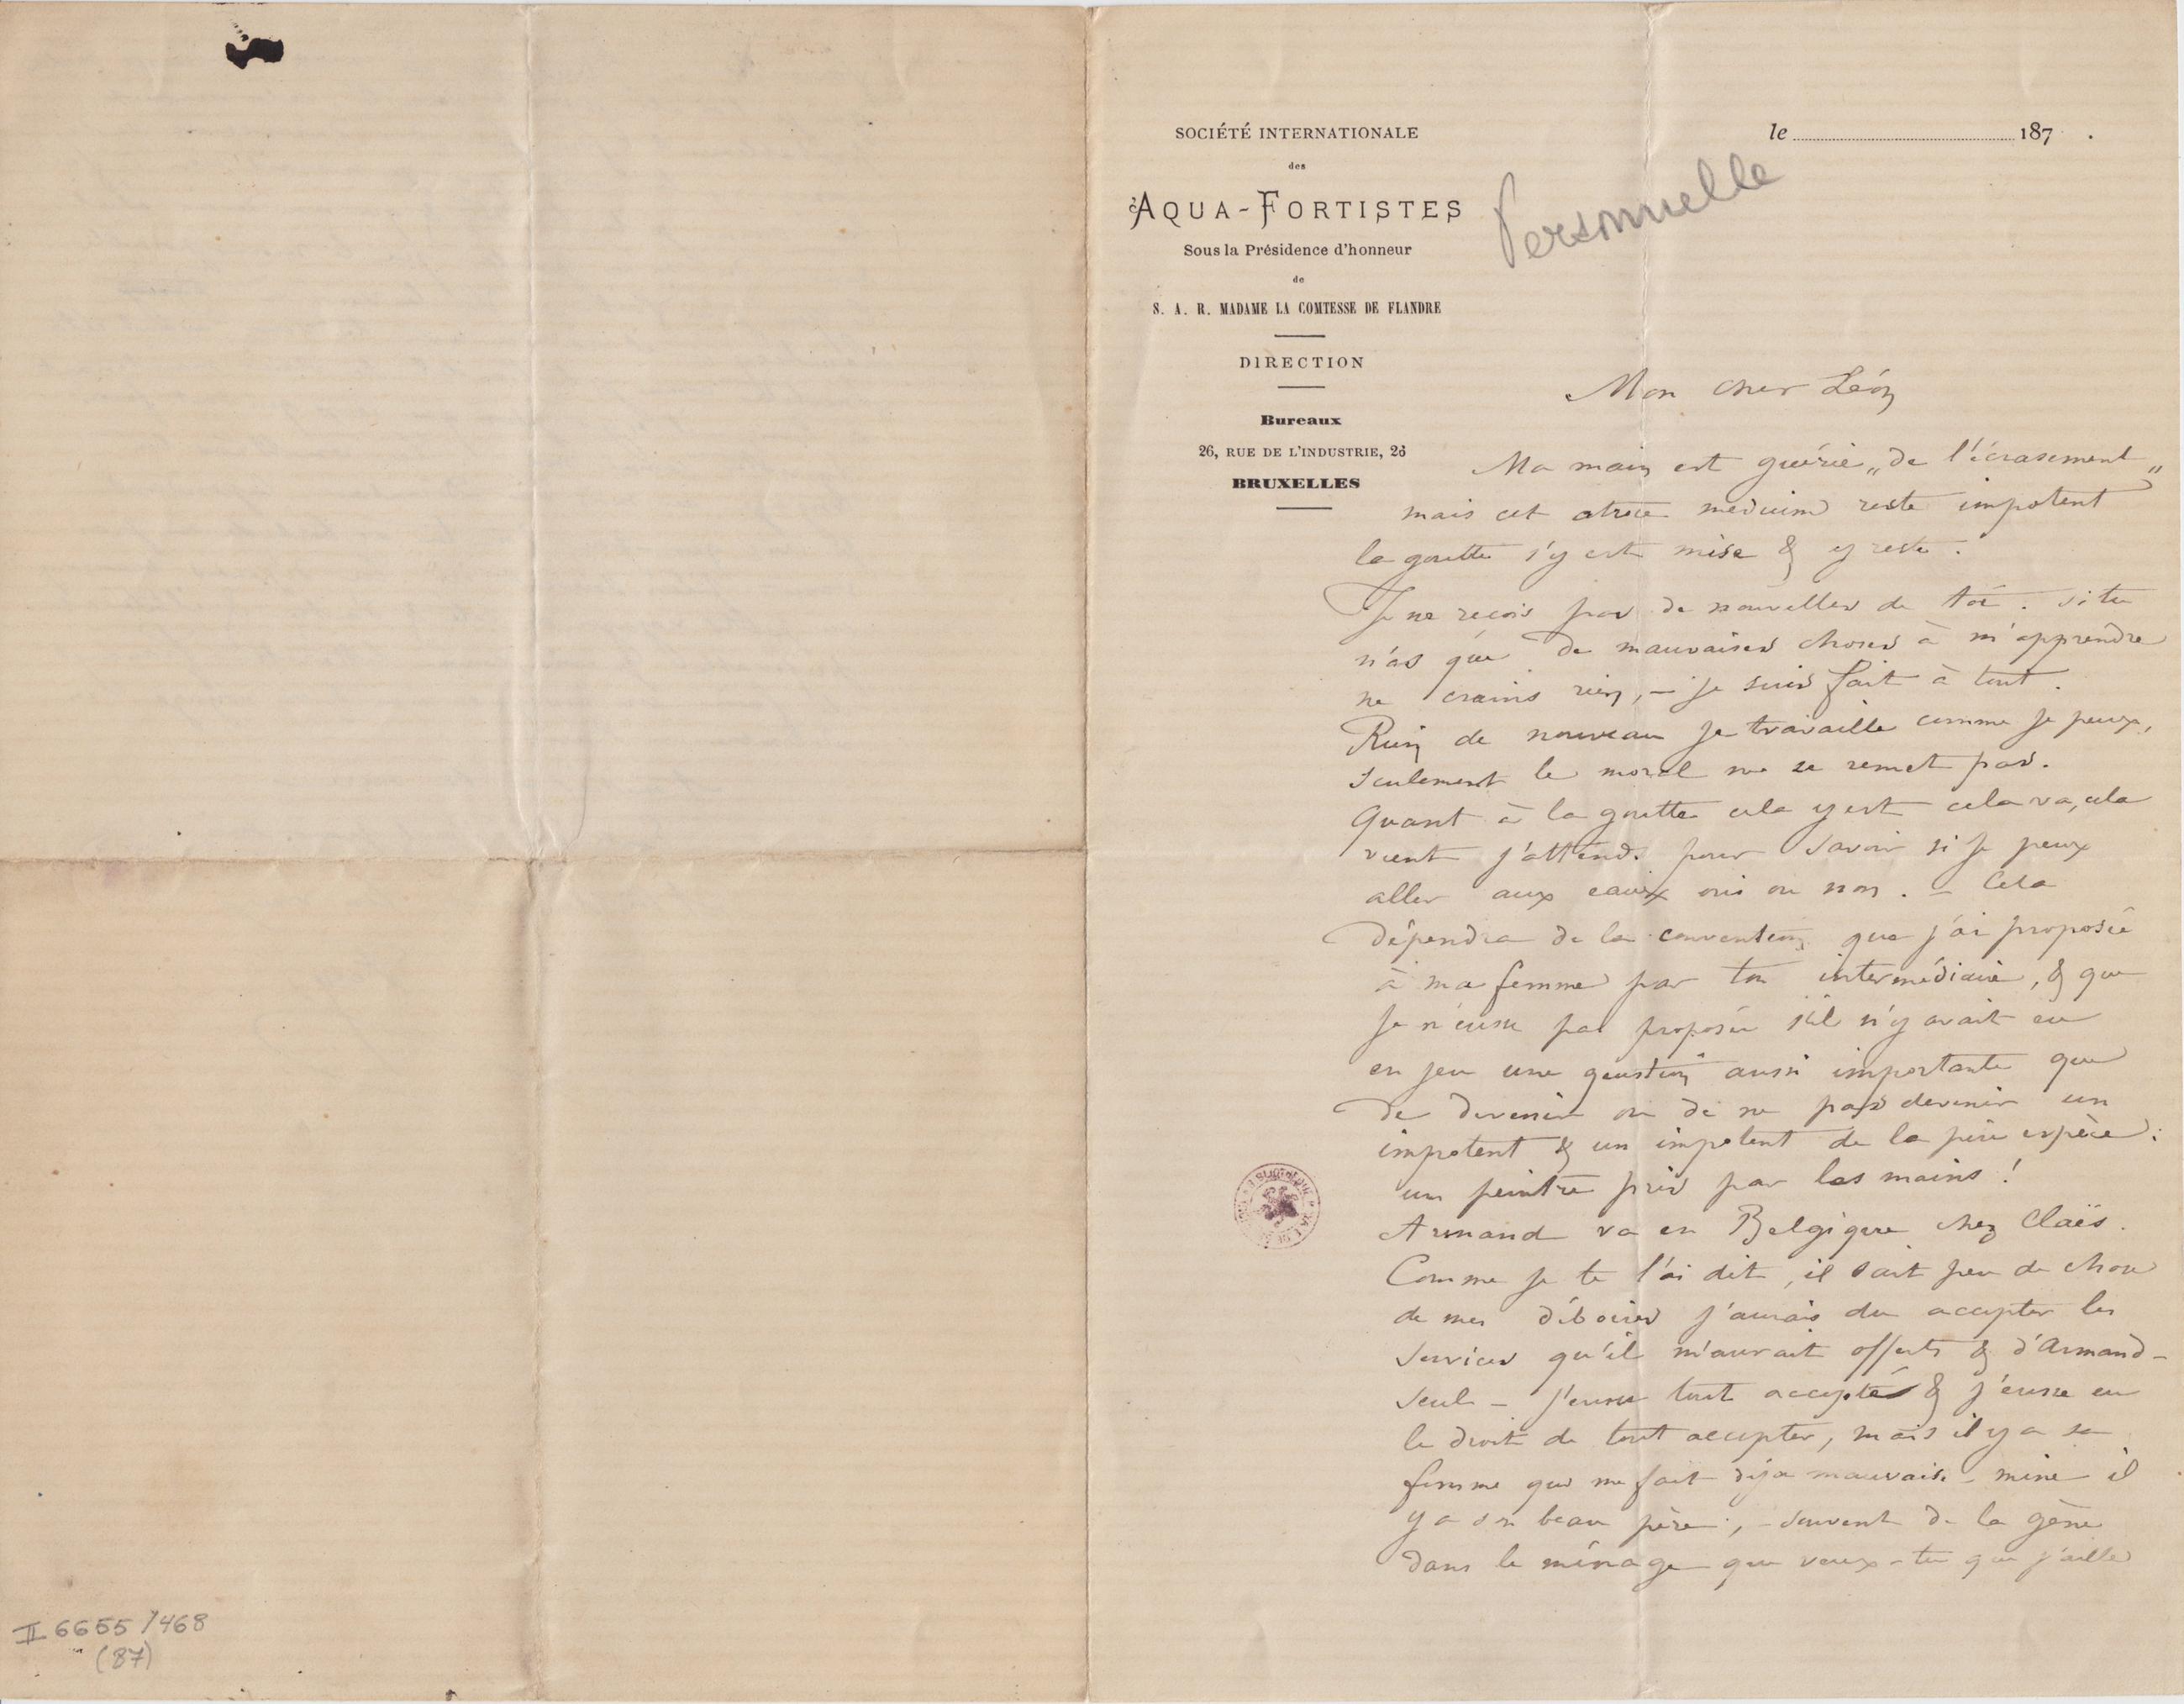 SOCIÉTÉ INTERNATIONALE
des
AQUA-FORTISTES
Sous la Présidence d'honneur
de
S. A. R. MADAME LA COMTESSE DE FLANDRE
DIRECTION
Bureaux
26, RUE DE L'INDUSTRIE, 26
BRUXELLES
le 187 .
Personnelle
Mon cher Léon
Ma main est guérie „de l'écrasement„
mais cet atroce reste impotent
la goutte s'y est mise & y reste.
Je ne reçois pas de nouvelles de toi. si tu
n'as que de mauvaises choses à m'apprendre
ne crains rien, – je suis fait à tout.
Rien de nouveau je travaille comme je peux,
seulement le moral ne se remet pas.
Quant à la goutte cela y est cela va, cela
vient j'attends pour savoir si je peux
aller aux eaux oui ou non. – Cela
dépendra de la convention que j'ai proposée
à ma femme par ton intermédiaire, & que
je n'eusse pas proposée s'il n'y avait eu
en jeu une question aussi importante que
de devenir ou de ne pas devenir un
impotent & un impotent de la pire espèce:
un peintre pris par les mains!
Armand va en Belgique chez Claës.
Comme je te l'ai dit, il sait peu de chose
de mes déboires j'aurais du accepter les
services qu'il m'aurait offerts & d'Armand –
seul – j'eusse tout accepté & j'eusse eu
le droit de tout accepter, mais il y a sa
femme qui me fait déja mauvaise mine il
y a son beau père, – souvent de la gène
dans le ménage que veux-tu que j'aille
II 6655/468
(87)